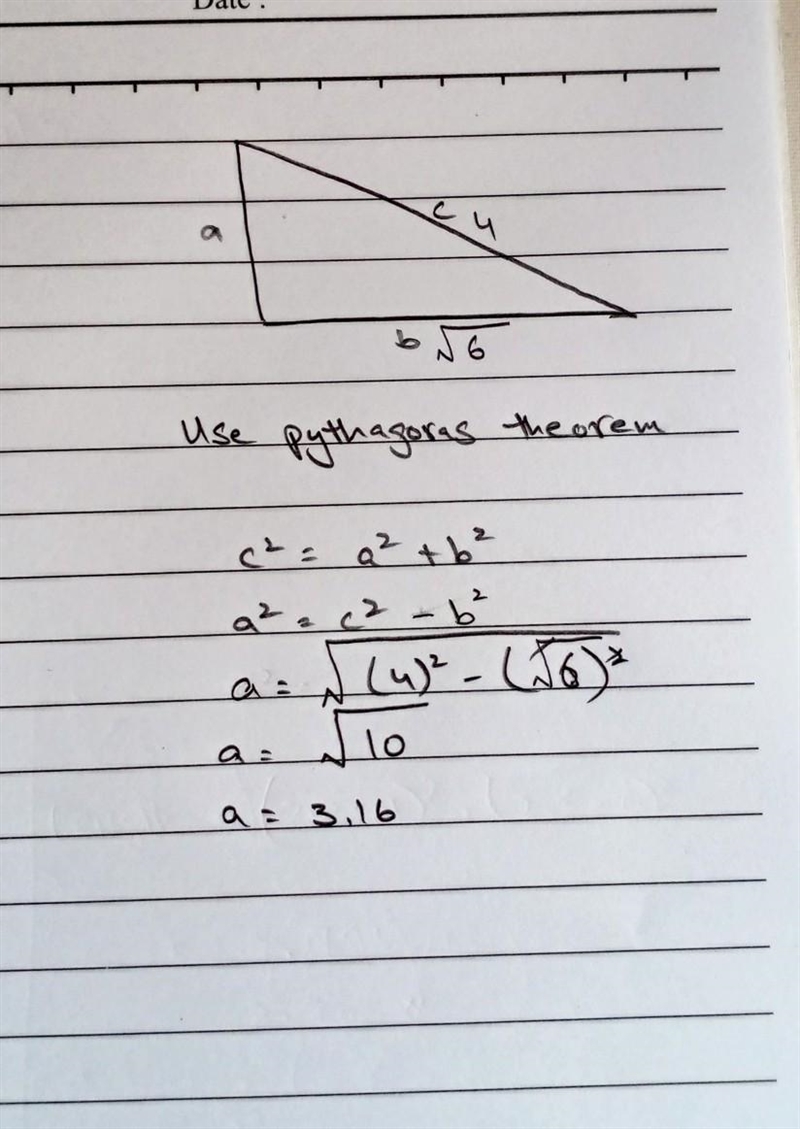 Date :
a
c 4
b √6
Use pythagoras theorem
c² = a² + b²
a² = c² - b²
a = √(4)² - (√6)²
a = √10
a = 3.16